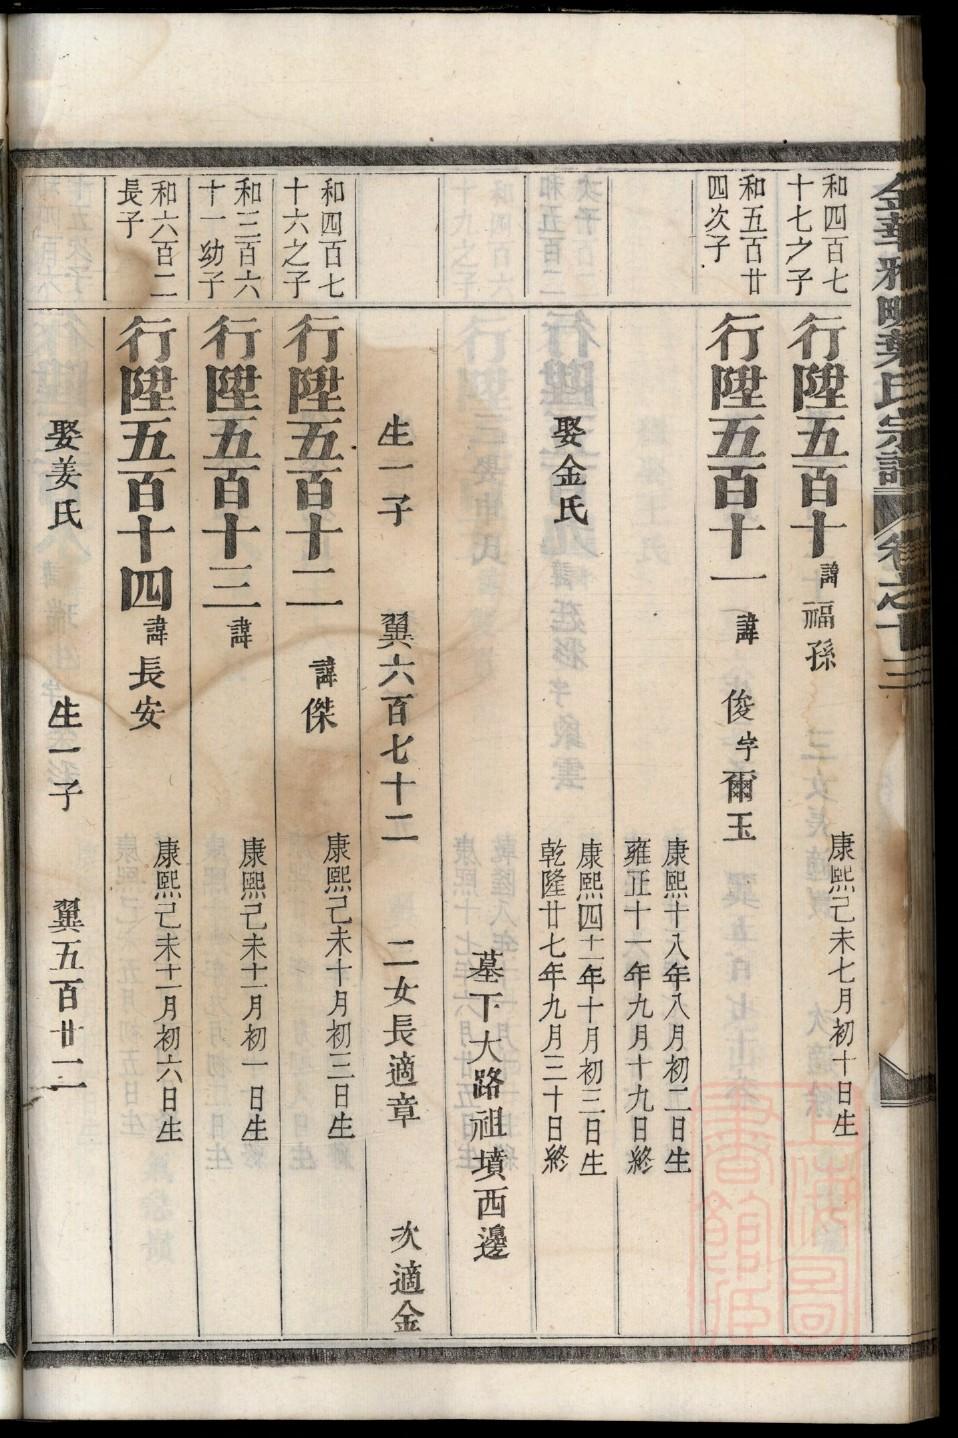 金華雅畈葉氏宗譜 卷之十三
和四百七
十七之子
行陞五百十 諱福孫
康熙己未七月初十日生
和五百廿
四次子
行陞五百十一 諱俊字爾玉
康熙十八年八月初二日生
雍正十一年九月十九日終
娶金氏
康熙四十一年十月初三日生
乾隆廿七年九月三十日終
墓下大路祖墳西邊
生一子 翼六百七十二 二女長適章 次適金
和四百七
十六之子
行陞五百十二 諱傑
康熙己未十月初三日生
和三百六
十一幼子
行陞五百十三 諱
康熙己未十一月初一日生
和六百二
長子
行陞五百十四 諱長安
康熙己未十一月初六日生
娶姜氏 生一子 翼五百廿二